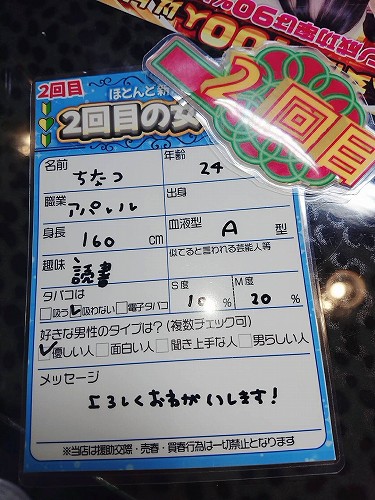 成功率は90%
2回目
2回目
ほとんど新
2回目の女
名前 ちなつ 年齢 24
職業 アパレル 出身
身長 160 cm 血液型 A 型
趣味 読書 似てると言われる芸能人等
タバコは S度 M度
吸う 吸わない 電子タバコ 10 % 20 %
好きな男性のタイプは?(複数チェック可)
優しい人 面白い人 聞き上手な人 男らしい人
メッセージ
よろしくおねがいします!
※当店は援助交際・売春・買春行為は一切禁止となります